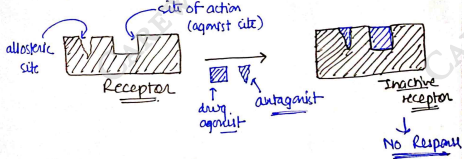 site of action
(agonist site)
allosteric
site
Receptor
drug
agonist
antagonist
Inactive
receptor
No Response